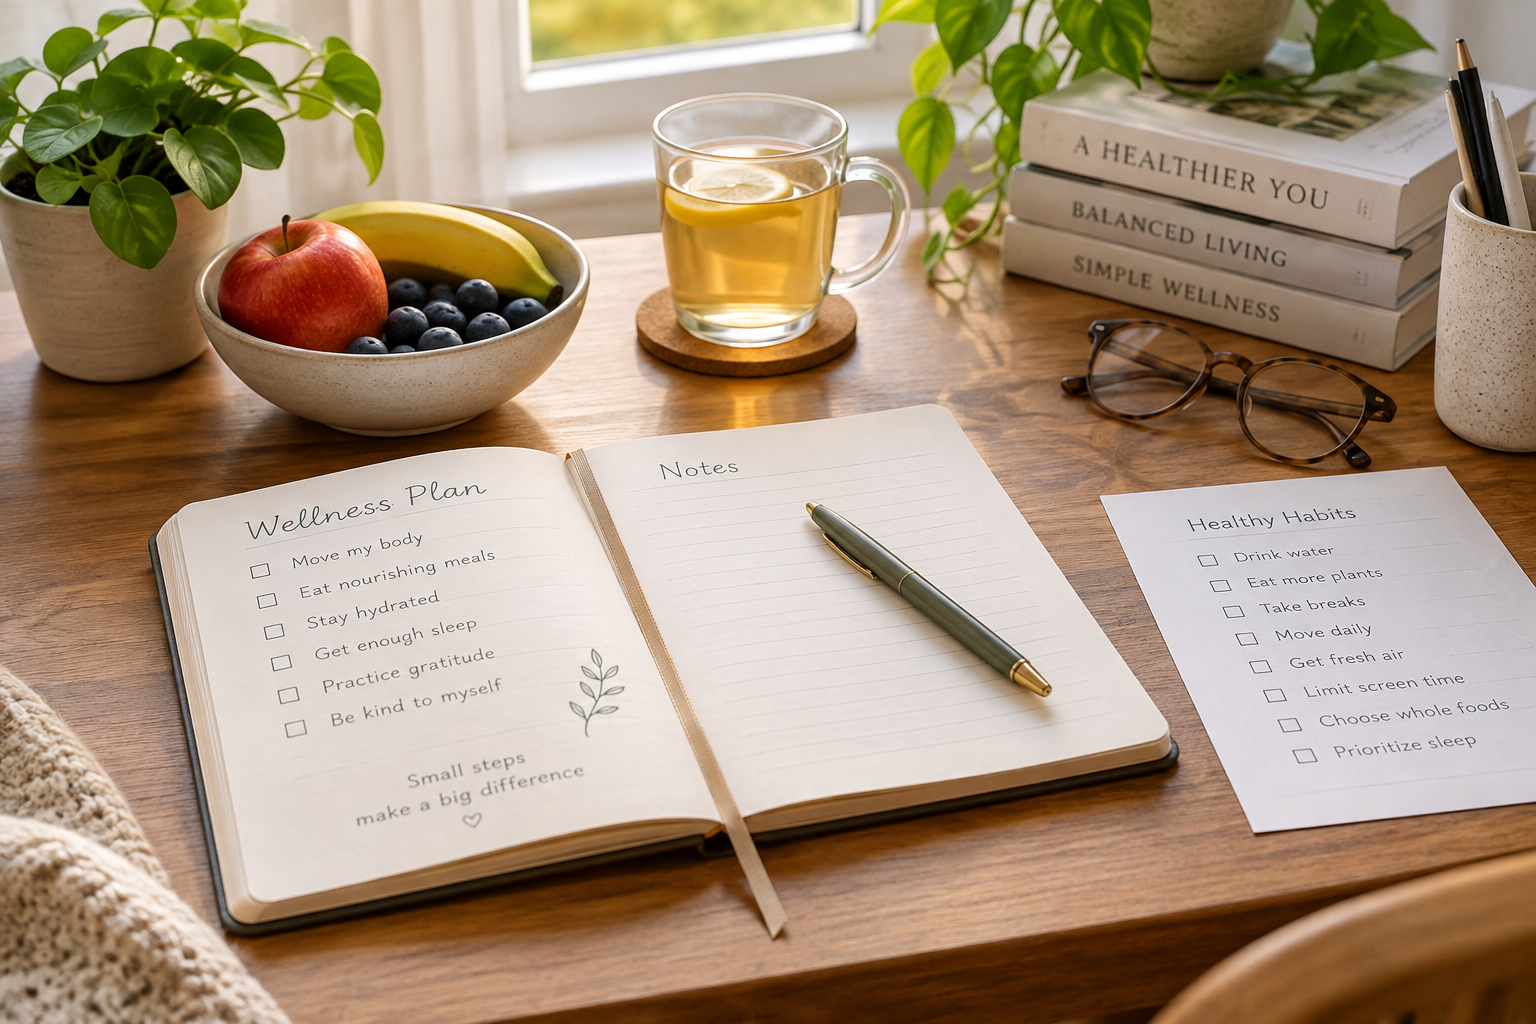 A HEALTHIER YOU
BALANCED LIVING
SIMPLE WELLNESS
Wellness Plan
Move my body
Eat nourishing meals
Stay hydrated
Get enough sleep
Practice gratitude
Be kind to myself
Small steps
make a big difference
Notes
Healthy Habits
Drink water
Eat more plants
Take breaks
Move daily
Get fresh air
Limit screen time
Choose whole foods
Prioritize sleep